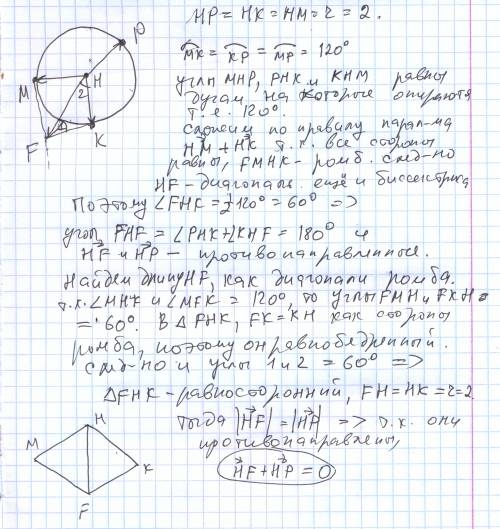 P
M
H
2
1
F
K
HP = HK = HM = r = 2.
MK = KP = MP = 120°
углы MHP, PHK и KHM равны
дугам, на которые опираются
т.е. 120°.
Сложим по правилу парал-ма
HM + HK т.к. все стороны
равны, FMHK - ромб. след-но
HF - диагональ. ещё и биссектриса
Поэтому ∠FHK = ½120° = 60° =>
угол PHF = ∠PHK + ∠KHF = 180° и
HF и HP - противонаправленные.
Найдём длину HF, как диагонали ромба.
т.к. ∠MHK и ∠MFK = 120°, то углы FMH и FKH =
= 60°. В △FHK, FK = KH как стороны
ромба, поэтому он равнобедренный.
след-но и углы 1 и 2 = 60° =>
△FHK - равносторонний, FH = HK = r = 2
Тогда |HF| = |HP| => т.к. они
противонаправлены,
HF + HP = 0
H
M
K
F